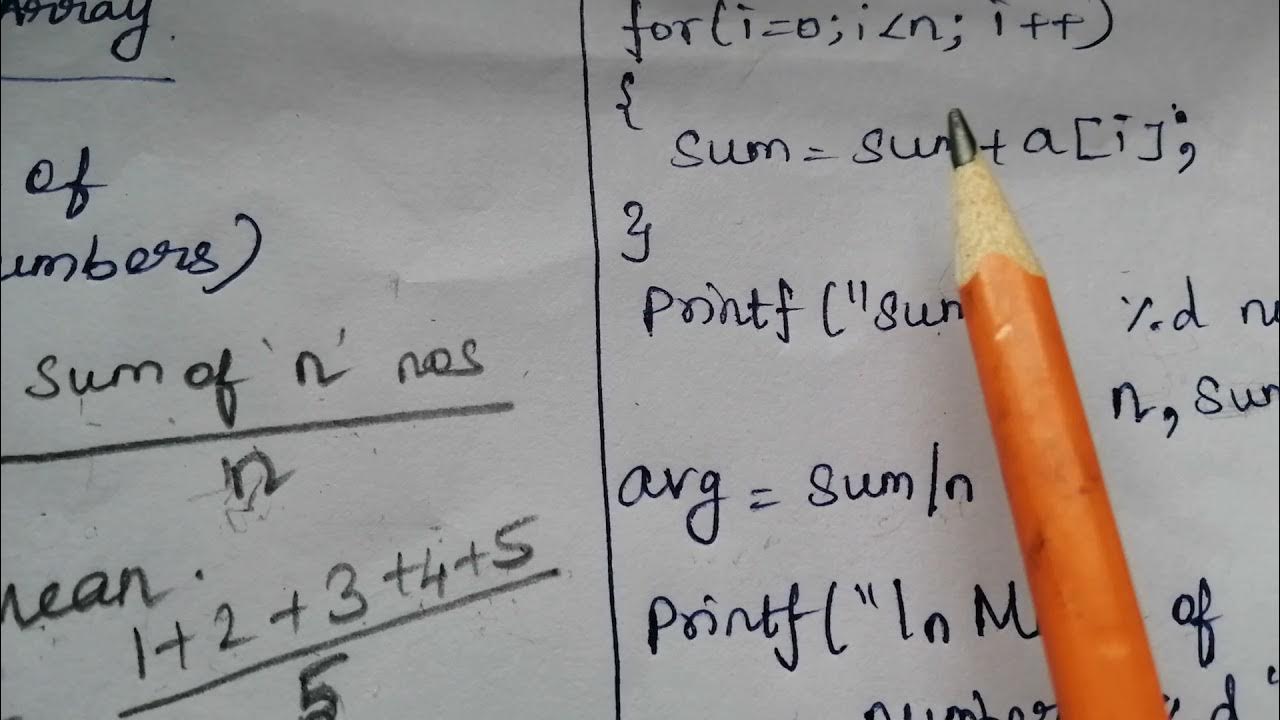 Array.
of
umbers)
sum of 'n' nos
n
mean.
1+2+3+4+5
5
for(i=0;i<n; i++)
{
sum = sum + a[i];
}
Printf ("sum %d
n, sum
avg = sum/n
Printf ("\n of
number %d "